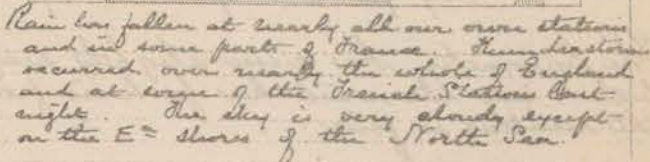 Rain has fallen at nearly all our own stations
and in some parts of France. Thunderstorms
occurred over nearly the whole of England
and at some of the French Stations last
night. The sky is very cloudy except
on the Eⁿ shores of the North Sea.